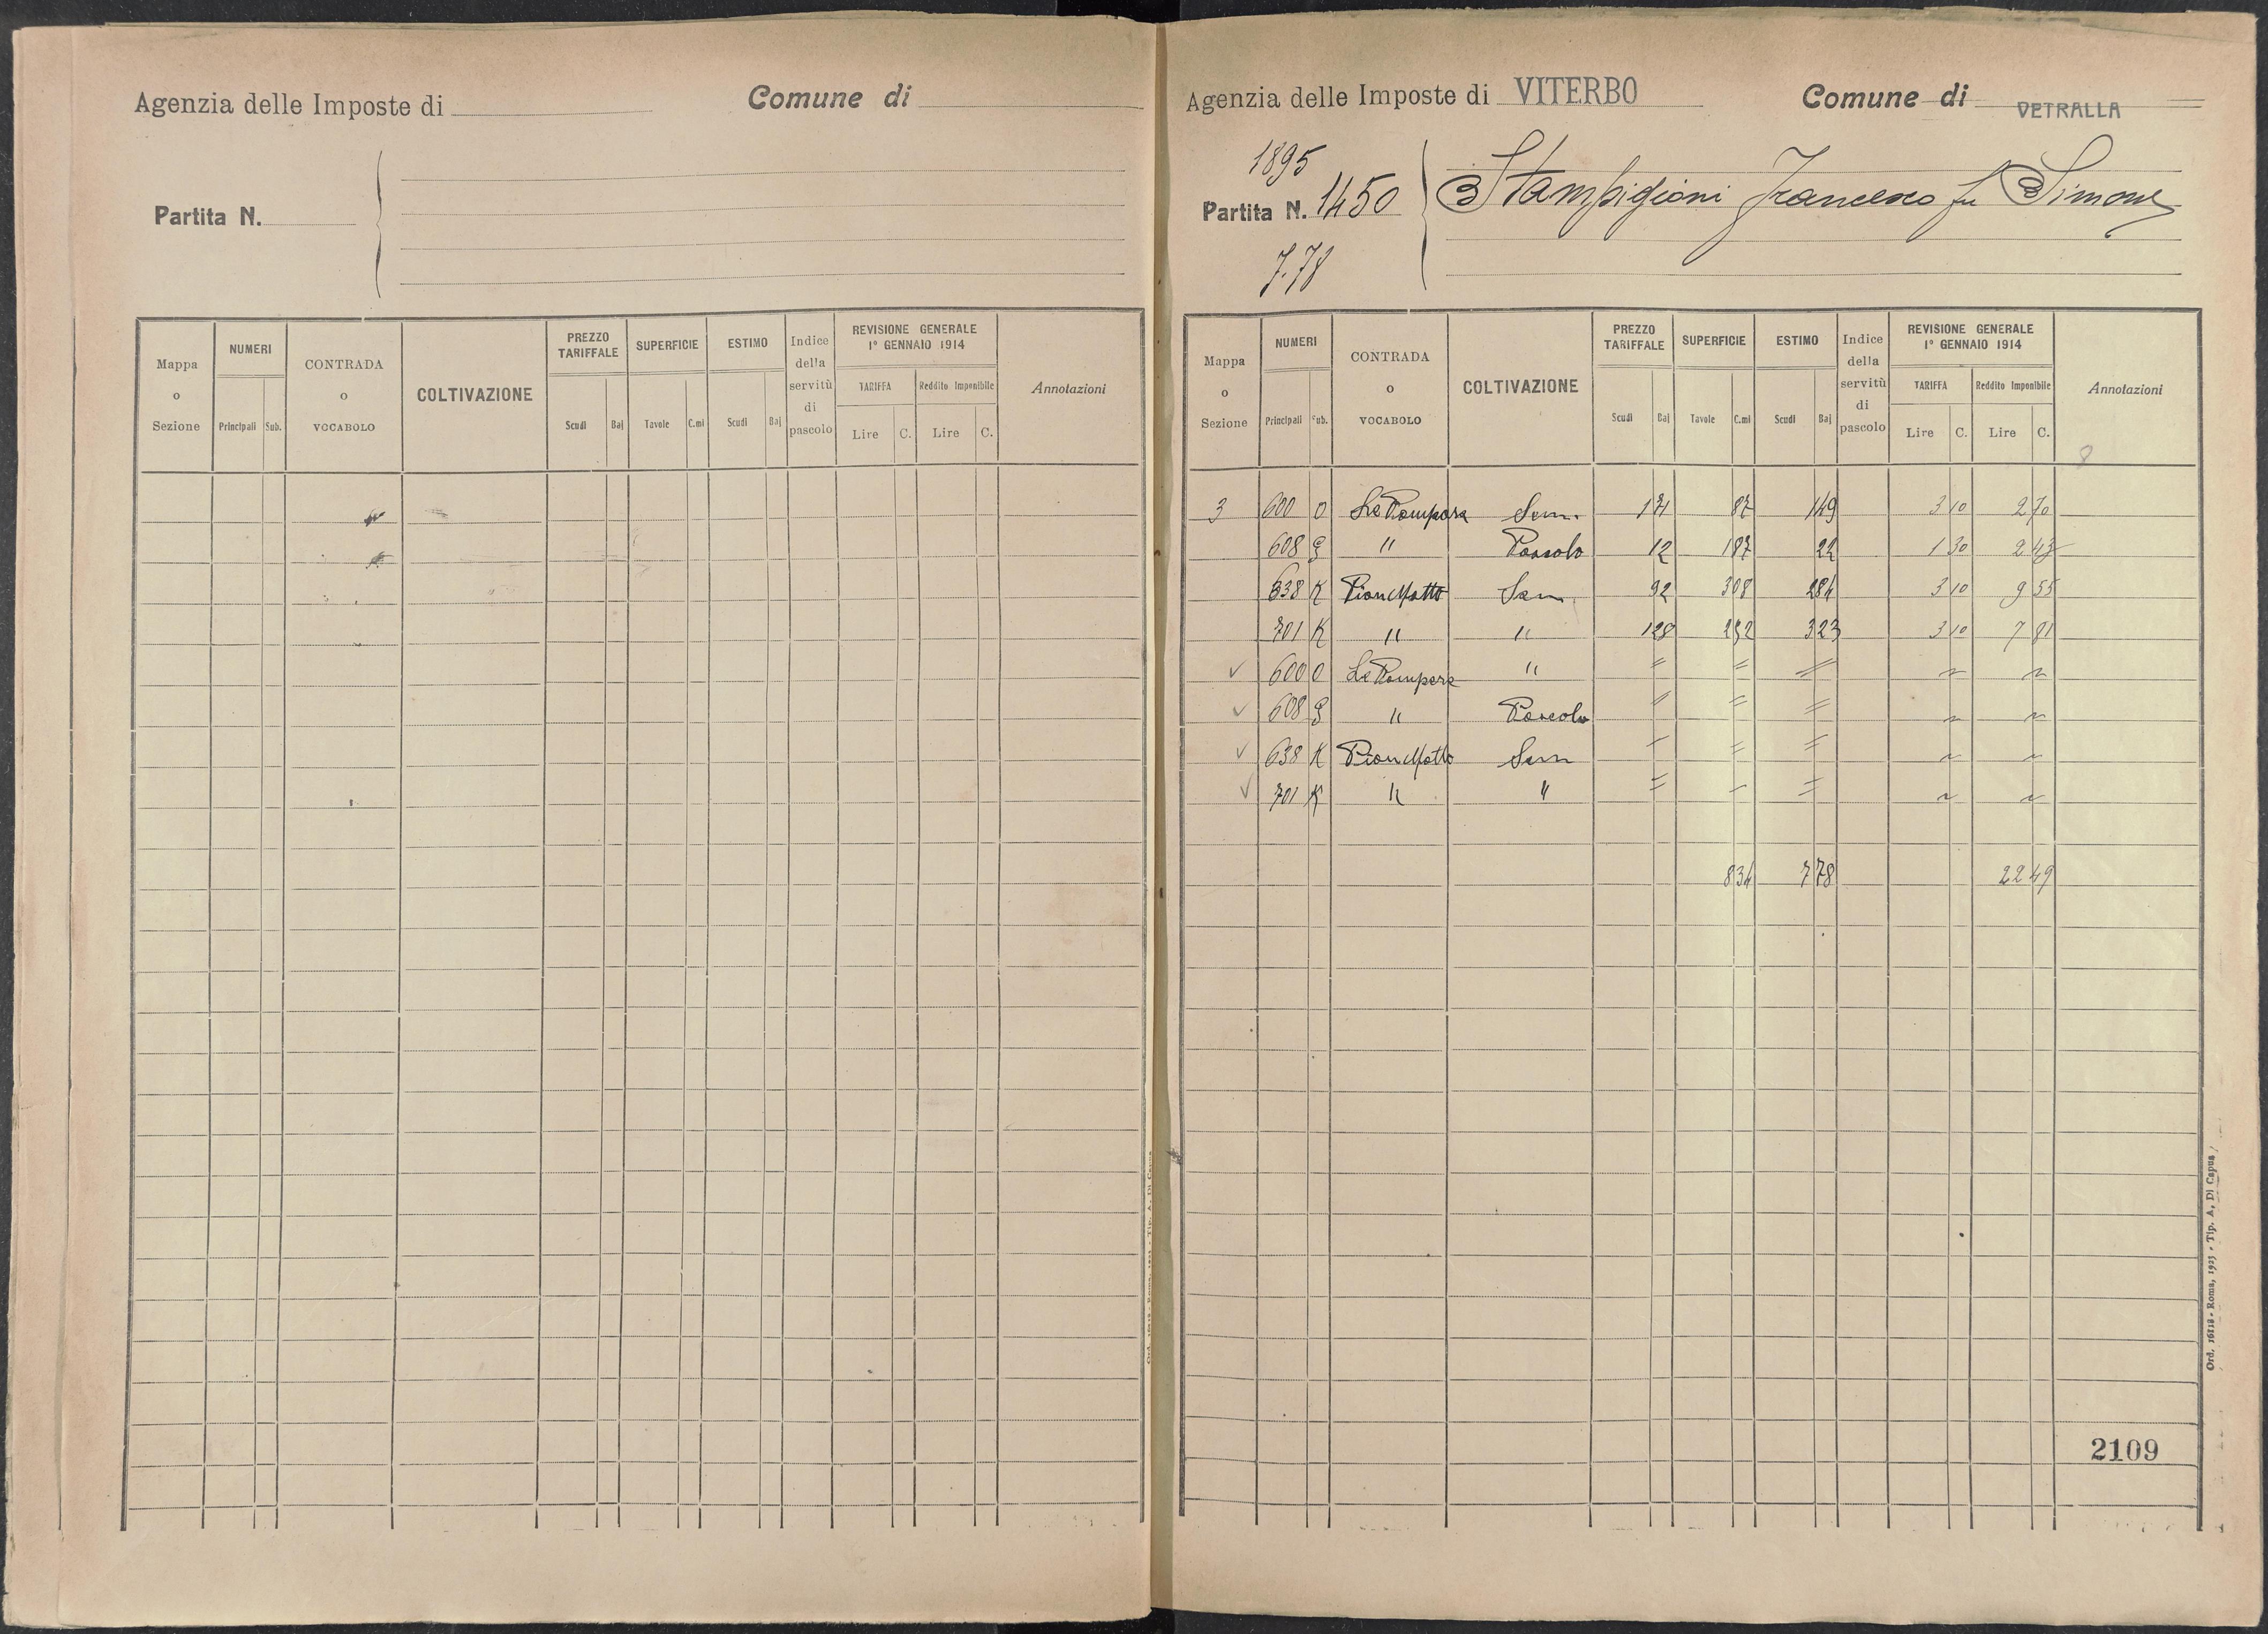 Agenzia delle Imposte di
Comune di
Partita N.
Mappa o Sezione
NUMERI
Principali Sub.
CONTRADA o VOCABOLO
COLTIVAZIONE
PREZZO TARIFFALE
Scudi Baj
SUPERFICIE
Tavole C.mi
ESTIMO
Scudi Baj
Indice della servitù di pascolo
REVISIONE GENERALE 1° GENNAIO 1914
TARIFFA Reddito Imponibile
Lire C. Lire C.
Annotazioni
Agenzia delle Imposte di VITERBO
Comune di VETRALLA
1895
Partita N. 1450
7.78
Stampigioni Francesco fu Simone
Mappa o Sezione
NUMERI
Principali Sub.
CONTRADA o VOCABOLO
COLTIVAZIONE
PREZZO TARIFFALE
Scudi Baj
SUPERFICIE
Tavole C.mi
ESTIMO
Scudi Baj
Indice della servitù di pascolo
REVISIONE GENERALE 1° GENNAIO 1914
TARIFFA Reddito Imponibile
Lire C. Lire C.
Annotazioni
8
3 600 O Le Rompare Sem. 171 87 149 3 10 2 70
608 " Pascolo 12 187 22 1 30 2 43
638 K Pian Matto Sem 92 308 284 3 10 9 55
701 K " " 128 252 323 3 10 7 81
✓ 600 O Le Rompare " = = = ~ ~
✓ 608 " Pascolo = = = ~ ~
✓ 638 K Pian Matto Sem – = = ~ ~
✓ 701 K " " = – = ~ ~
834 7 78 22 49
2109
Ord. 16218 - Roma, 1923 - Tip. A. Di Capua